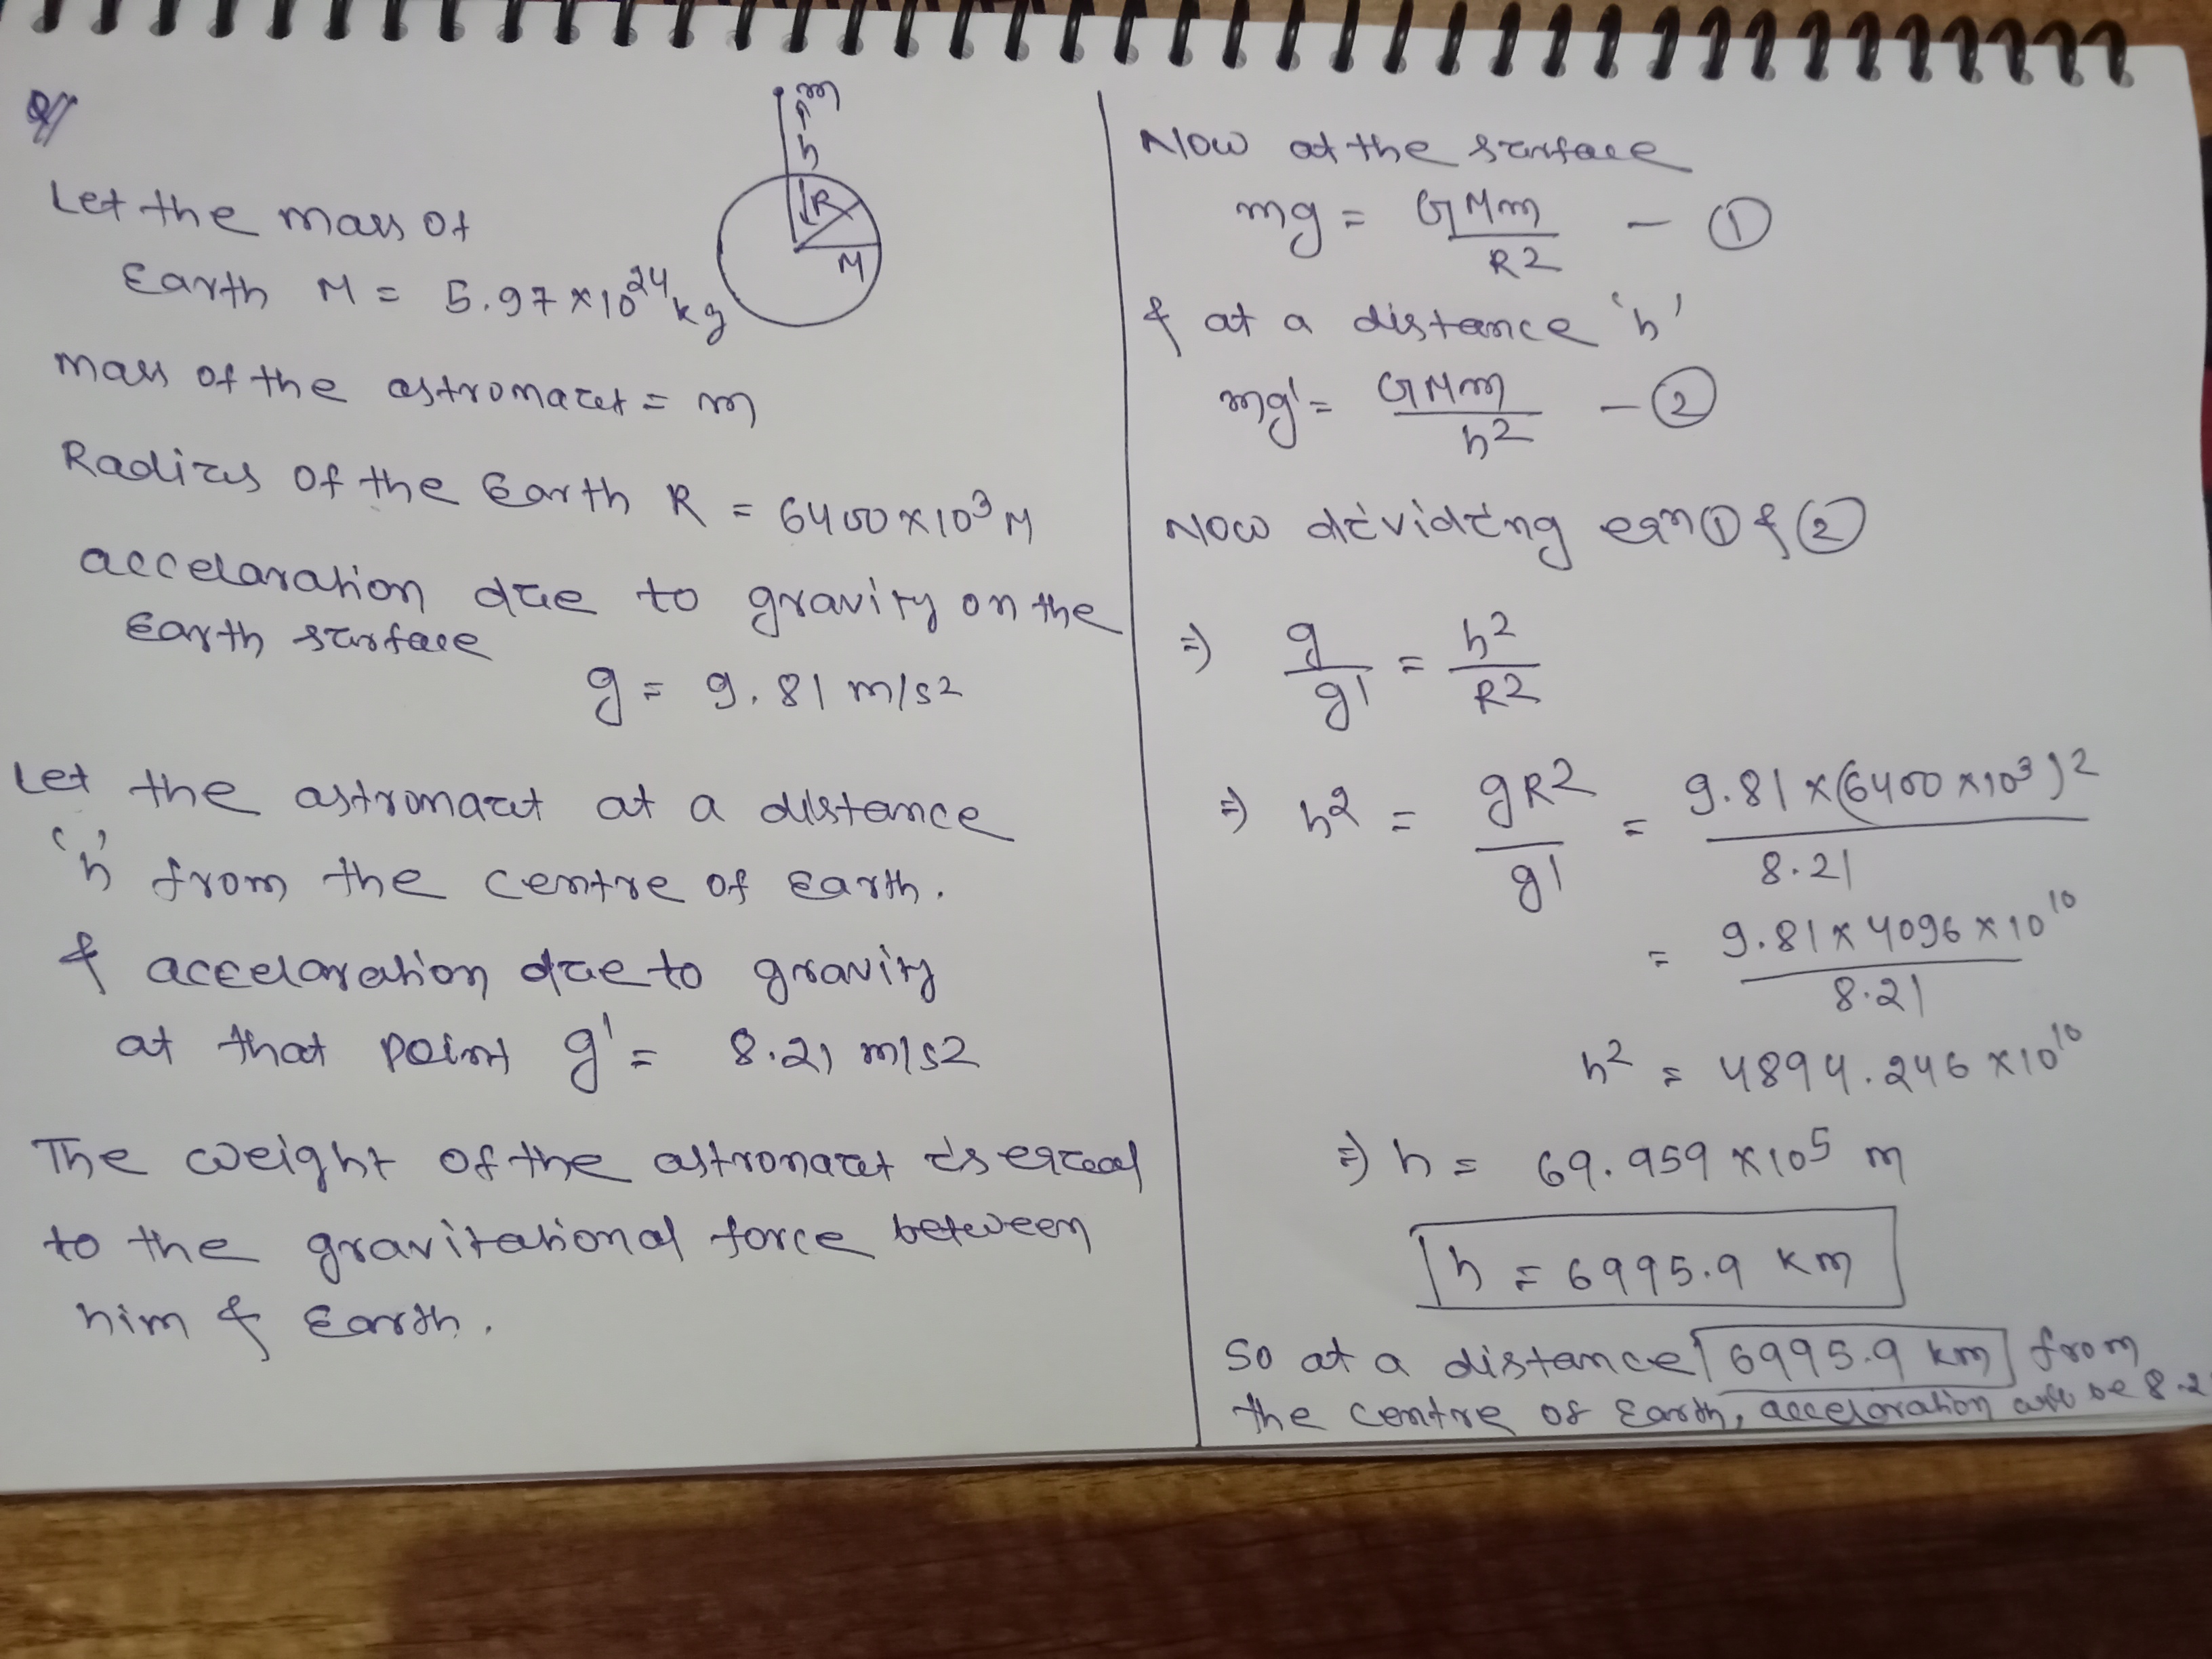 Q//
m
h
R
M
Let the mass of
Earth M = 5.97 × 10²⁴ kg
mass of the astronaut = m
Radius of the Earth R = 6400 × 10³ M
accelaration due to gravity on the
Earth surface
g = 9.81 m/s2
Let the astronaut at a distance
'h' from the centre of Earth.
& accelaration due to gravity
at that point g' = 8.21 m/s2
The weight of the astronaut is equal
to the gravitational force between
him & Earth.
Now at the surface
mg = GMm / R2 — ①
& at a distance 'h'
mg' = GMm / h2 — ②
Now dividing eqn ① & ②
⇒ g / g' = h2 / R2
⇒ h2 = gR2 / g' = 9.81 × (6400 × 10³)2 / 8.21
= 9.81 × 4096 × 10¹⁰ / 8.21
h2 = 4894.246 × 10¹⁰
⇒ h = 69.959 × 10⁵ m
h = 6995.9 km
So at a distance 6995.9 km from
the centre of Earth, acceloration will be 8.2